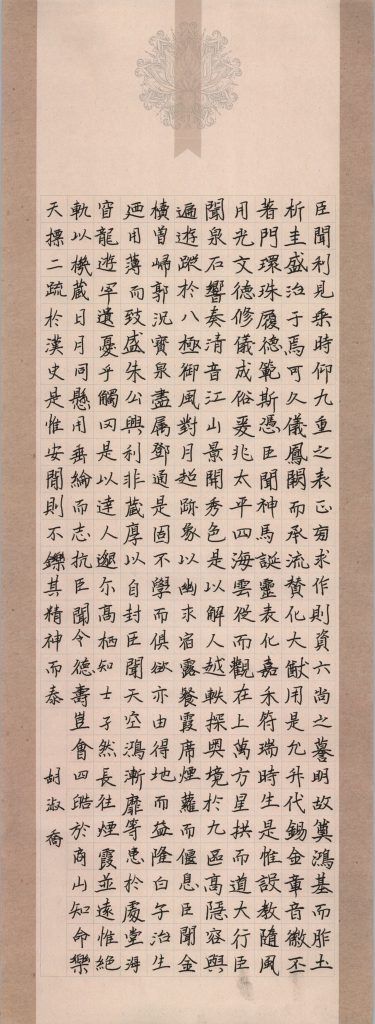 臣聞利見乘時仰九重之表正旁求作則資六尚之謩明故奠鴻基而胙土
析圭盛治于焉可久儀鳳闕而承流贊化大猷用是允升代錫金章音徽丕
著門環珠履德範斯憑臣聞神馬誕靈表化嘉禾符瑞時生是惟設教隨風
用光文德修儀成俗爰兆太平四海雲從而觀在上萬方星拱而道大行臣
聞泉石響奏清音江山景開秀色是以解人越軼探奧境於九區高隱容與
遍遊蹤於八極御風對月超跡象以幽求宿露餐霞席煙蘿而偃息臣聞金
櫝曽歸郭況寳泉盡屬鄧通是固不學而俱欲亦由得地而益隆白子治生
廼用薄而致盛朱公興利非蔵厚以自封臣聞天空鴻漸靡等患於處堂海
窅龍遊罕遺憂乎觸罔是以達人邈尔高栖知士孑然長往煙霞並遠惟絕
軌以機蔵日月同懸用垂綸而志抗臣聞令德壽豈會四皓於商山知命樂
天標二疏於漢史是惟安閒則不鑠其精神而泰
胡淑喬